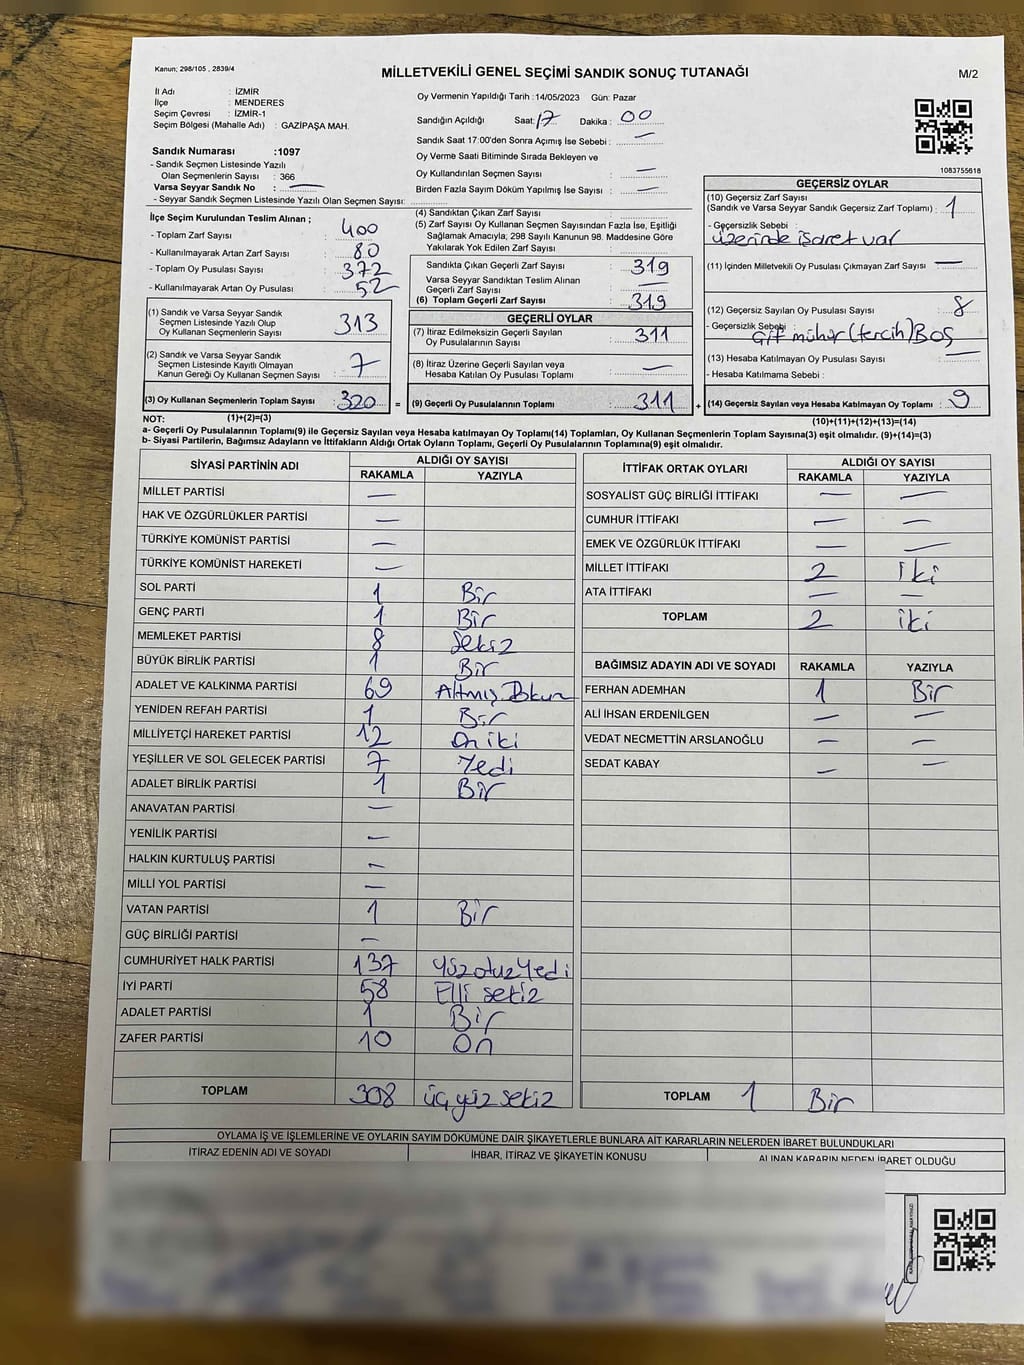 Kanun; 298/105 , 2839/4
MİLLETVEKİLİ GENEL SEÇİMİ SANDIK SONUÇ TUTANAĞI
M/2
İl Adı : İZMİR
İlçe : MENDERES
Seçim Çevresi : İZMİR-1
Seçim Bölgesi (Mahalle Adı) : GAZİPAŞA MAH.
Sandık Numarası :1097
- Sandık Seçmen Listesinde Yazılı
Olan Seçmenlerin Sayısı : 366
Varsa Seyyar Sandık No : —
- Seyyar Sandık Seçmen Listesinde Yazılı Olan Seçmen Sayısı:
Oy Vermenin Yapıldığı Tarih :14/05/2023 Gün: Pazar
Sandığın Açıldığı Saat: 17 Dakika : 00
Sandık Saat 17:00'den Sonra Açımış İse Sebebi : —
Oy Verme Saati Bitiminde Sırada Bekleyen ve
Oy Kullandırılan Seçmen Sayısı : —
Birden Fazla Sayım Döküm Yapılmış İse Sayısı : —
1083755618
İlçe Seçim Kurulundan Teslim Alınan ;
- Toplam Zarf Sayısı : 400
- Kullanılmayarak Artan Zarf Sayısı : 80
- Toplam Oy Pusulası Sayısı : 372
- Kullanılmayarak Artan Oy Pusulası : 52
(1) Sandık ve Varsa Seyyar Sandık
Seçmen Listesinde Yazılı Olup
Oy Kullanan Seçmenlerin Sayısı : 313
(2) Sandık ve Varsa Seyyar Sandık
Seçmen Listesinde Kayıtlı Olmayan
Kanun Gereği Oy Kullanan Seçmen Sayısı : 7
(3) Oy Kullanan Seçmenlerin Toplam Sayısı : 320 =
(1)+(2)=(3)
(4) Sandıktan Çıkan Zarf Sayısı :
(5) Zarf Sayısı Oy Kullanan Seçmen Sayısından Fazla İse, Eşitliği
Sağlamak Amacıyla; 298 Sayılı Kanunun 98. Maddesine Göre
Yakılarak Yok Edilen Zarf Sayısı :
Sandıkta Çıkan Geçerli Zarf Sayısı : 319
Varsa Seyyar Sandıktan Teslim Alınan
Geçerli Zarf Sayısı : —
(6) Toplam Geçerli Zarf Sayısı : 319
GEÇERLİ OYLAR
(7) İtiraz Edilmeksizin Geçerli Sayılan
Oy Pusulalarının Sayısı : 311
(8) İtiraz Üzerine Geçerli Sayılan veya
Hesaba Katılan Oy Pusulası Toplamı : —
(9) Geçerli Oy Pusulalarının Toplamı : 311 +
GEÇERSİZ OYLAR
(10) Geçersiz Zarf Sayısı
(Sandık ve Varsa Seyyar Sandık Geçersiz Zarf Toplamı) : 1
- Geçersizlik Sebebi :
üzerinde işaret var
(11) İçinden Milletvekili Oy Pusulası Çıkmayan Zarf Sayısı : —
(12) Geçersiz Sayılan Oy Pusulası Sayısı : 8
- Geçersizlik Sebebi :
Çift mühür (tercih) Boş
(13) Hesaba Katılmayan Oy Pusulası Sayısı : —
- Hesaba Katılmama Sebebi :
(14) Geçersiz Sayılan veya Hesaba Katılmayan Oy Toplamı : 9
(10)+(11)+(12)+(13)=(14)
NOT:
a- Geçerli Oy Pusulalarının Toplamı(9) ile Geçersiz Sayılan veya Hesaba katılmayan Oy Toplamı(14) Toplamları, Oy Kullanan Seçmenlerin Toplam Sayısına(3) eşit olmalıdır. (9)+(14)=(3)
b- Siyasi Partilerin, Bağımsız Adayların ve İttifakların Aldığı Ortak Oyların Toplamı, Geçerli Oy Pusulalarının Toplamına(9) eşit olmalıdır.
SİYASİ PARTİNİN ADI ALDIĞI OY SAYISI
RAKAMLA YAZIYLA
MİLLET PARTİSİ —
HAK VE ÖZGÜRLÜKLER PARTİSİ —
TÜRKİYE KOMÜNİST PARTİSİ —
TÜRKİYE KOMÜNİST HAREKETİ —
SOL PARTİ 1 Bir
GENÇ PARTİ 1 Bir
MEMLEKET PARTİSİ 8 Sekiz
BÜYÜK BİRLİK PARTİSİ 1 Bir
ADALET VE KALKINMA PARTİSİ 69 Altmış Dokuz
YENİDEN REFAH PARTİSİ 1 Bir
MİLLİYETÇİ HAREKET PARTİSİ 12 On iki
YEŞİLLER VE SOL GELECEK PARTİSİ 7 Yedi
ADALET BİRLİK PARTİSİ 1 Bir
ANAVATAN PARTİSİ —
YENİLİK PARTİSİ —
HALKIN KURTULUŞ PARTİSİ —
MİLLİ YOL PARTİSİ —
VATAN PARTİSİ 1 Bir
GÜÇ BİRLİĞİ PARTİSİ —
CUMHURİYET HALK PARTİSİ 137 Yüz otuz Yedi
İYİ PARTİ 58 Elli sekiz
ADALET PARTİSİ 1 Bir
ZAFER PARTİSİ 10 On
TOPLAM 308 üç yüz sekiz
İTTİFAK ORTAK OYLARI ALDIĞI OY SAYISI
RAKAMLA YAZIYLA
SOSYALİST GÜÇ BİRLİĞİ İTTİFAKI — —
CUMHUR İTTİFAKI — —
EMEK VE ÖZGÜRLÜK İTTİFAKI — —
MİLLET İTTİFAKI 2 iki
ATA İTTİFAKI — —
TOPLAM 2 iki
BAĞIMSIZ ADAYIN ADI VE SOYADI RAKAMLA YAZIYLA
FERHAN ADEMHAN 1 Bir
ALİ İHSAN ERDENİLGEN — —
VEDAT NECMETTİN ARSLANOĞLU — —
SEDAT KABAY — —
TOPLAM 1 Bir
OYLAMA İŞ VE İŞLEMLERİNE VE OYLARIN SAYIM DÖKÜMÜNE DAİR ŞİKAYETLERLE BUNLARA AİT KARARLARIN NELERDEN İBARET BULUNDUKLARI
İTİRAZ EDENİN ADI VE SOYADI İHBAR, İTİRAZ VE ŞİKAYETİN KONUSU ALINAN KARARIN NEDEN İBARET OLDUĞU